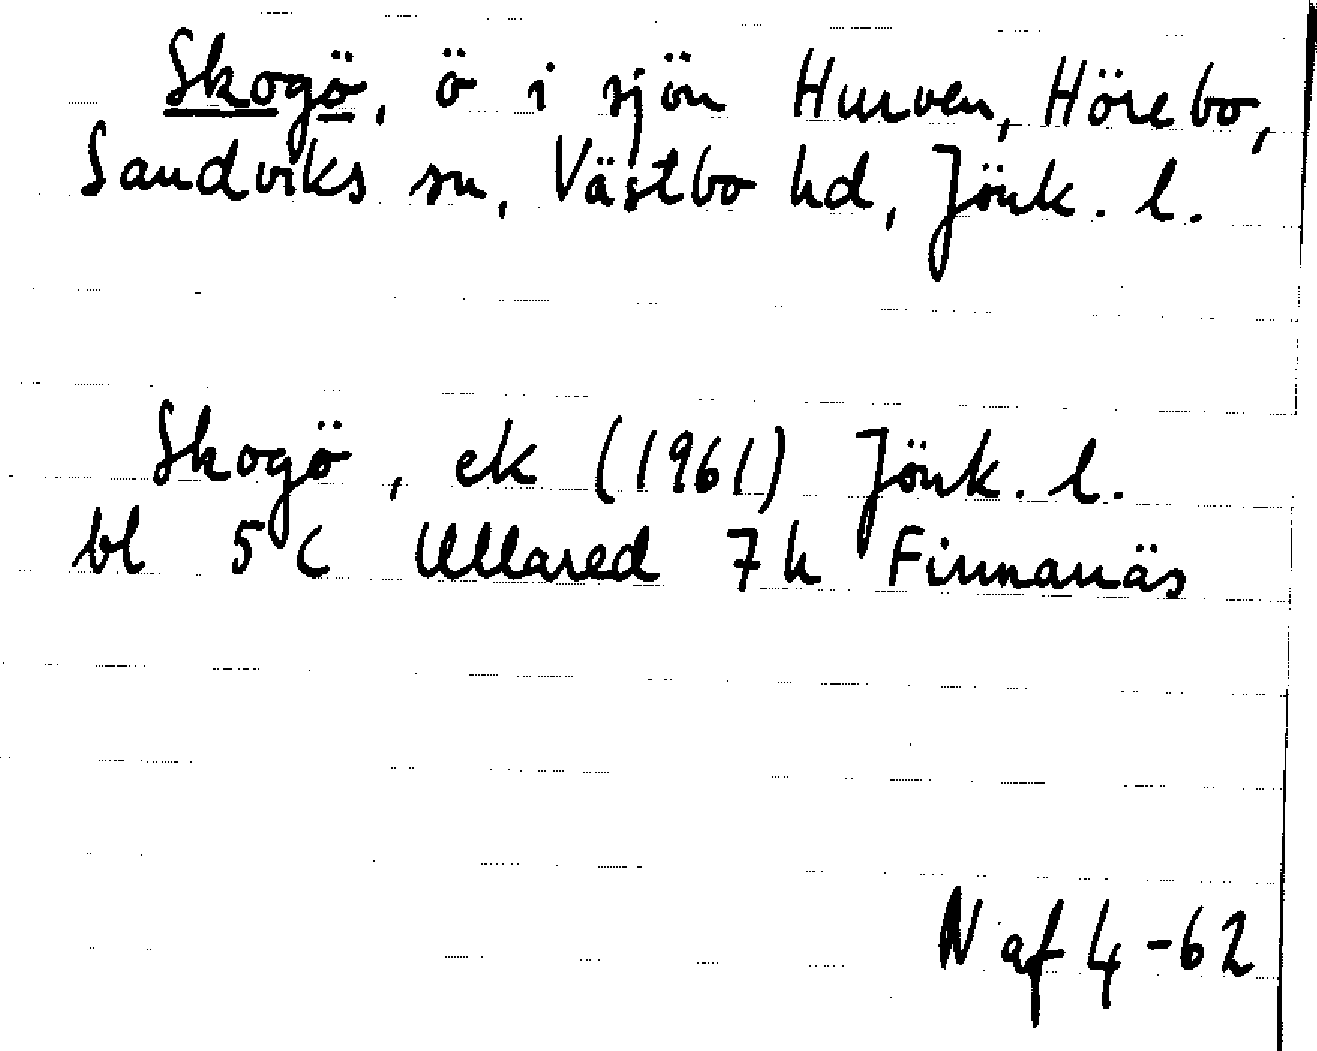 Skogö, ö i sjön Hurven, Hörebo,
Sandviks sn, Västbo hd, Jönk. l.
Skogö, ek (1961) Jönk. l.
bl 5 C Ullared 7h Finnanäs
N af 4-62